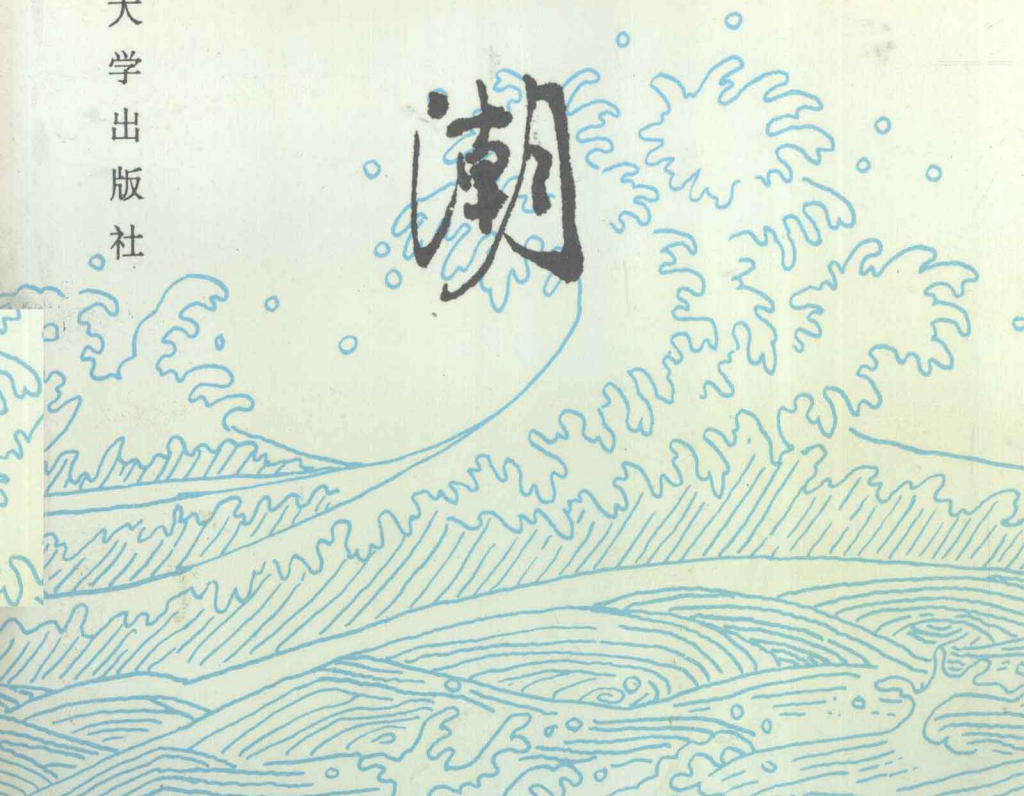 大学出版社
潮